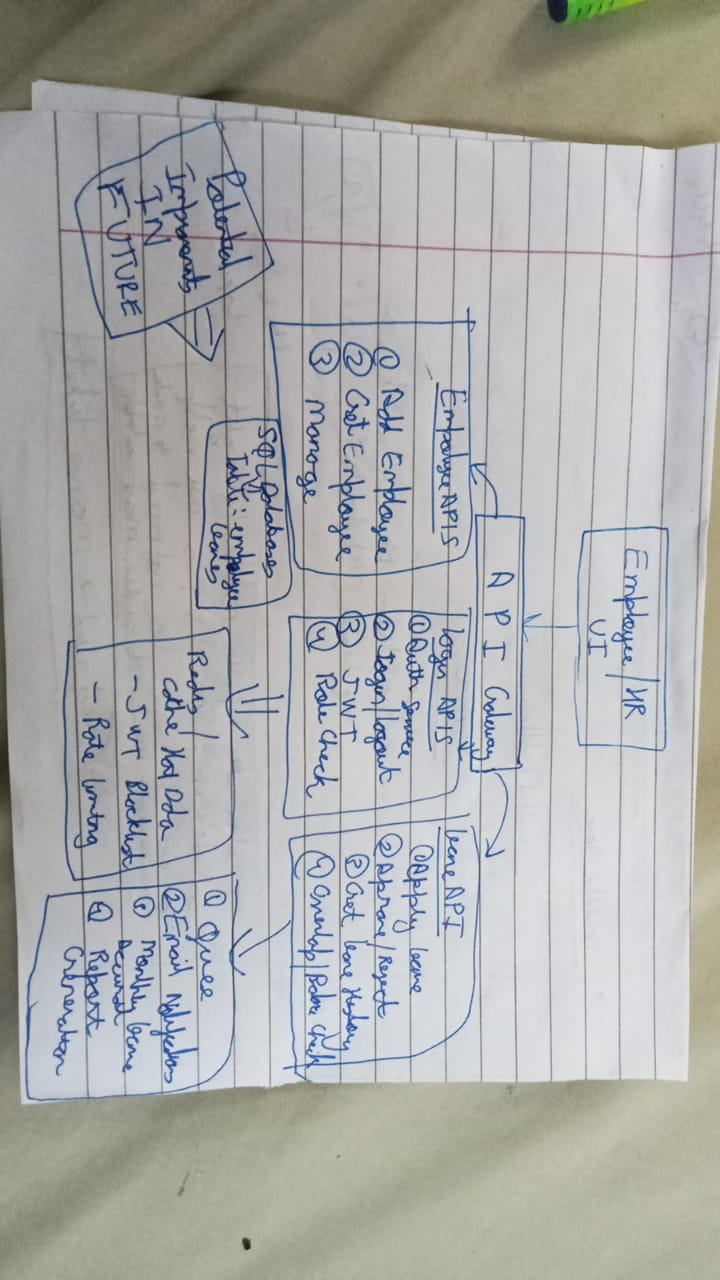 Employee/HR
UI
API Gateway
Employee APIS
① Add Employee
② Get Employee
③ Manage
Login APIS
① Auth Service
② Login/Logout
③ JWT
④ Role Check
Leave API
① Apply leave
② Approve/Reject
③ Get leave History
④ Overlap/Balance Check
SQL Databases
Table: employee
leaves
Potential
IN
FUTURE
Redis/
Hot Data
- JWT Blacklist
- Rate limiting
①
② Email Notifications
Monthly leave
④ Report
Generation